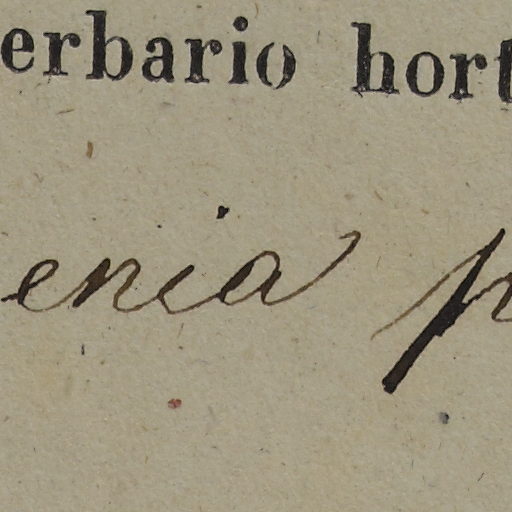 erbario hort
enia p